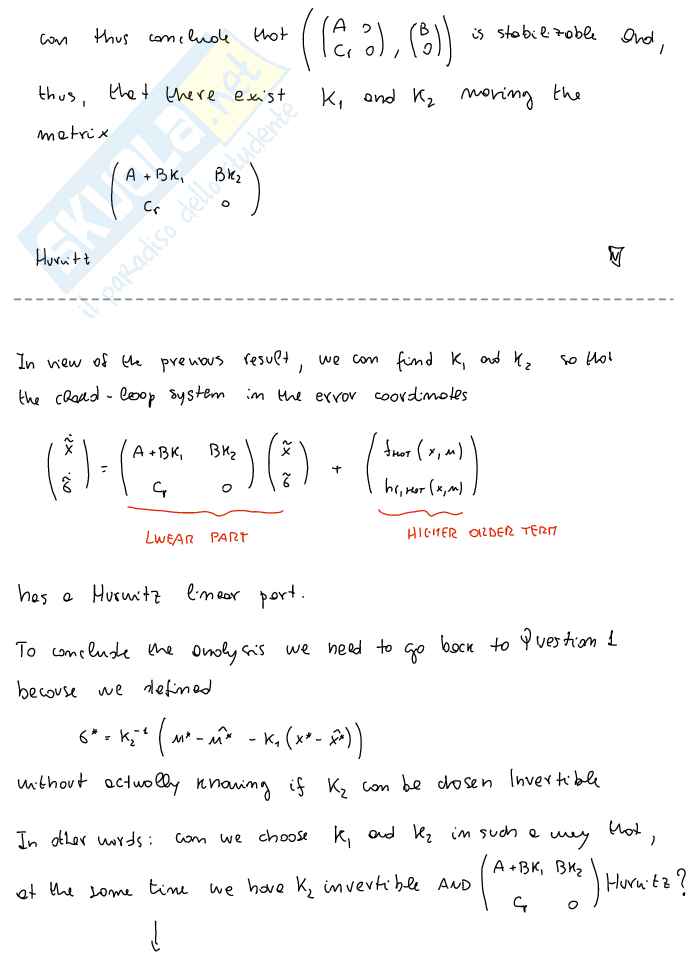 can thus conclude that ((A 0 ; Cr 0), (B ; 0)) is stabilizable and,
thus, that there exist K₁ and K₂ moving the
matrix
(A + BK₁ BK₂ ; Cr 0)
Hurwitz
SKUOLA.net
il paradiso dello studente
In view of the previous result, we can find K₁ and K₂ so that
the closed-loop system in the error coordinates
(x̃̇ ; σ̃̇) = (A+BK₁ BK₂ ; Cr 0) (x̃ ; σ̃) + (f_HOT(x,u) ; h_r,HOT(x,u))
LINEAR PART HIGHER ORDER TERM
has a Hurwitz linear part.
To conclude the analysis we need to go back to Question 1
because we defined
σ* = K₂⁻¹ (u* - û* - K₁ (x* - x̂*))
without actually knowing if K₂ can be chosen Invertible
In other words: can we choose K₁ and K₂ in such a way that,
at the same time we have K₂ invertible AND (A+BK₁ BK₂ ; Cr 0) Hurwitz?